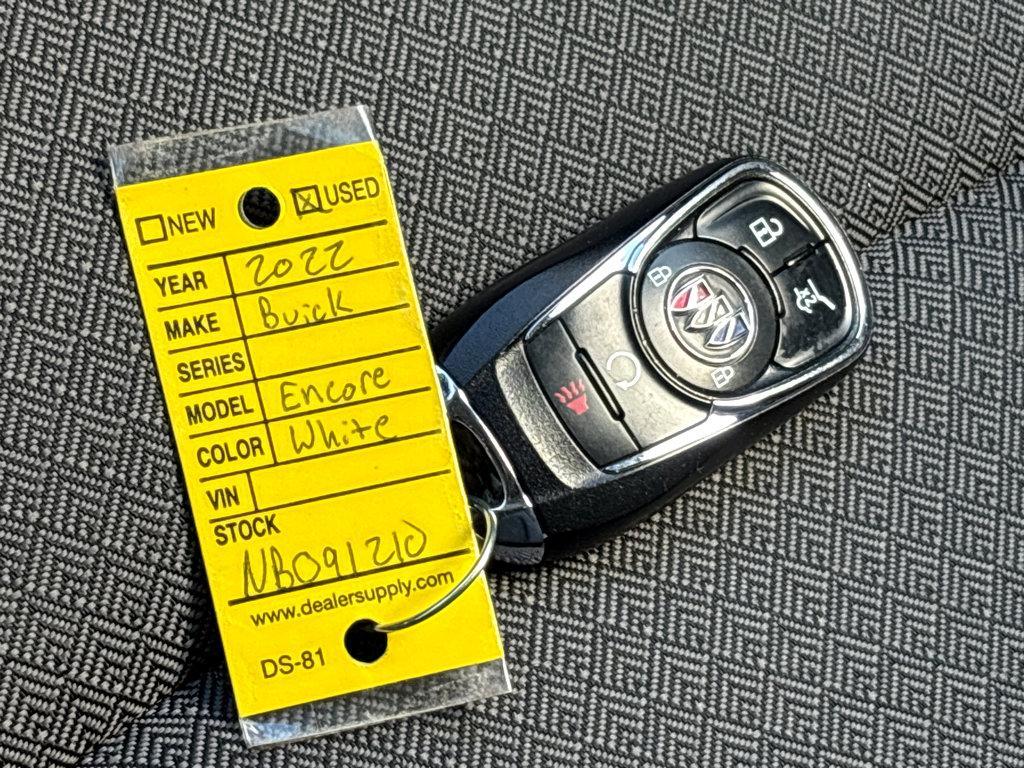 NEW USED
YEAR 2022
MAKE Buick
SERIES
MODEL Encore
COLOR White
VIN
STOCK
NB091210
www.dealersupply.com
DS-81